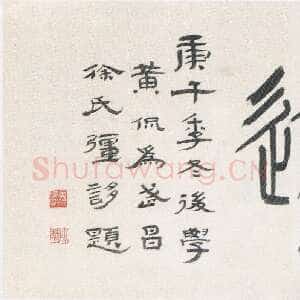 庚午季冬後學
黃侃爲武昌
徐氏彊誃題
Shufawang.CN